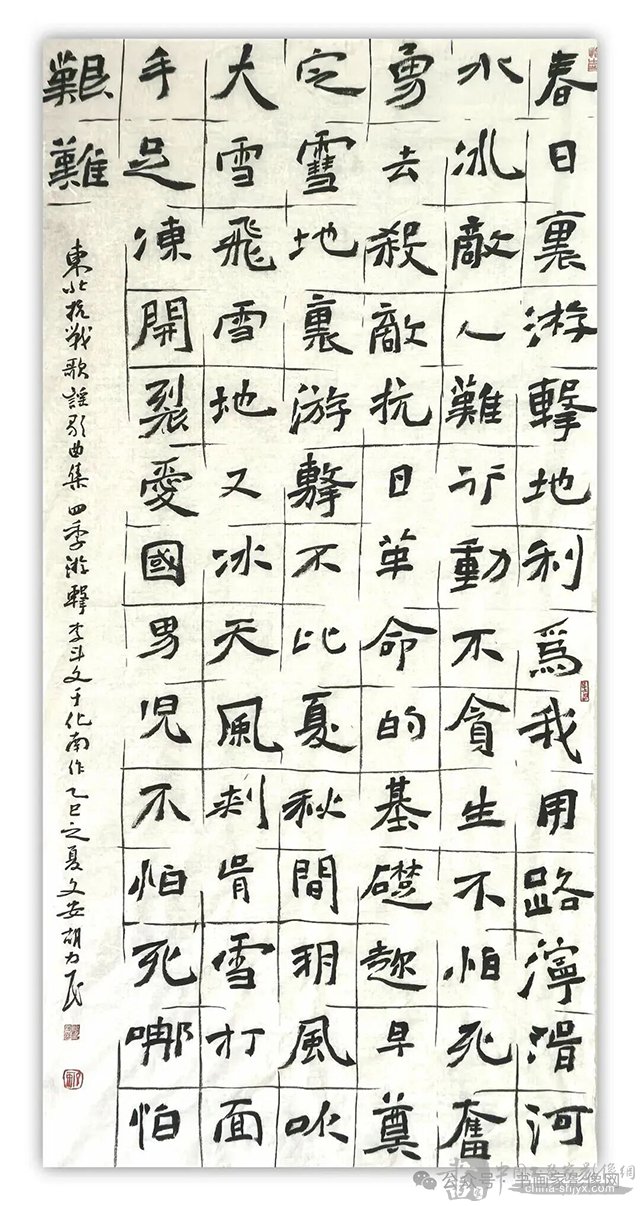 春日裏游擊地利爲我用路濘滑河
水冰敵人難行動不貪生不怕死奮
勇去殺敵抗日革命的基礎趁早奠
定雪地裏游擊不比夏秋間朔風吹
大雪飛雪地又冰天風刺骨雪打面
手足凍開裂愛國男児不怕死哪怕
艱難
東北抗戰歌謠歌曲集四季游擊李斗文于化南作乙巳之夏文安胡力民
公众号·书画家影像网
china-shjyx.com